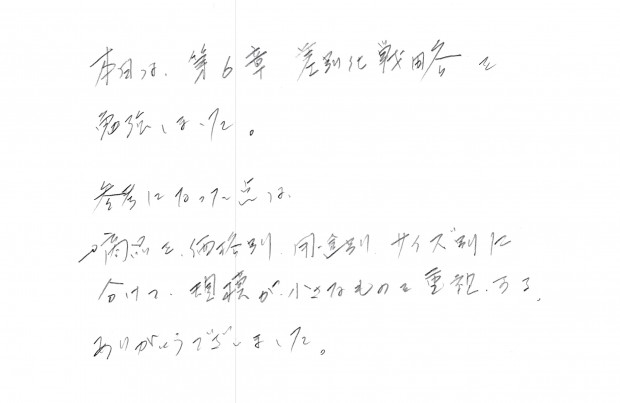 本日は、第6章 差別化戦略を
勉強しました。
参考になった点は、
商品を、価格別、用途別、サイズ別に
分けて、規模が小さなものを重視する。
ありがとうございました。